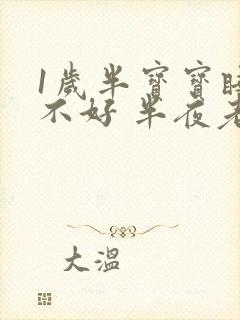 1歲半寶寶睡
不好 半夜老
大溫